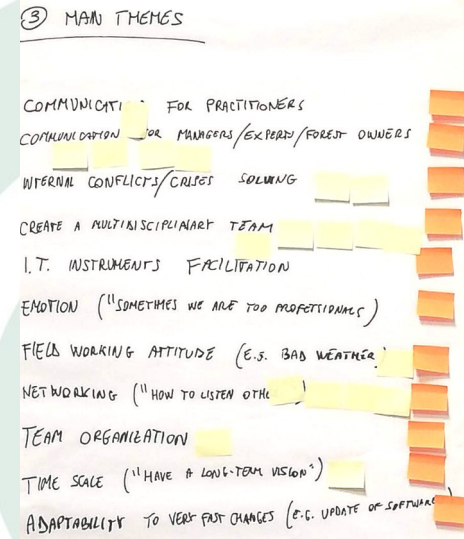 3 MAIN THEMES
COMMUNICATI FOR PRACTITIONERS
COMMUNICATION OR MANAGERS/EXPERTS/FOREST OWNERS
INTERNAL CONFLICTS/CRISES SOLVING
CREATE A MULTIDISCIPLINARY TEAM
I.T. INSTRUMENTS FACILITATION
EMOTION ("SOMETIMES WE ARE TOO PROFESSIONALS)
FIELD WORKING ATTITUDE (E.G. BAD WEATHER)
NETWORKING ("HOW TO LISTEN OTHE )
TEAM ORGANIZATION
TIME SCALE ("HAVE A LONG-TERM VISION")
ADAPTABILITY TO VERY FAST CHANGES (E.G. UPDATE OF SOFTWARE)